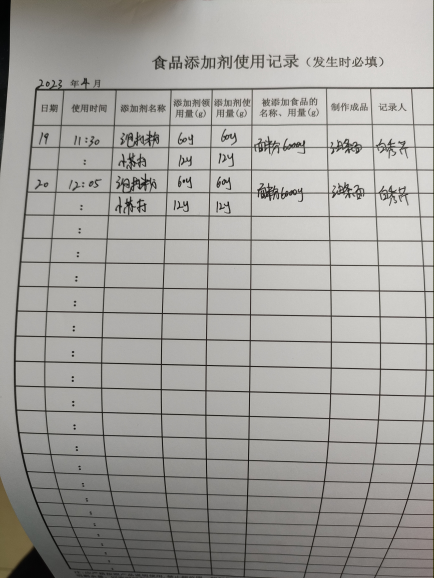 食品添加剂使用记录（发生时必填）
2023 年 4 月
日期 使用时间 添加剂名称 添加剂领用量(g) 添加剂使用量(g) 被添加食品的名称、用量(g) 制作成品 记录人
19 11:30 泡打粉 60g 60g 面粉6000g 油条面 白秀芹
: 小苏打 12g 12g
20 12:05 泡打粉 60g 60g 面粉6000g 油条面 白秀芹
: 小苏打 12g 12g